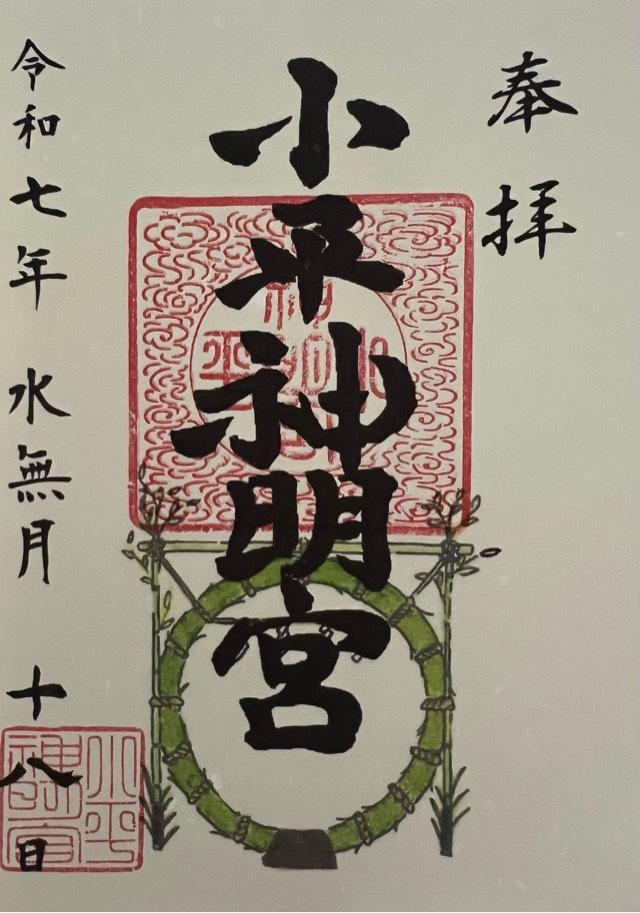 奉拝
小平神明宮
令和七年 水無月 十八日
小平
神明宮